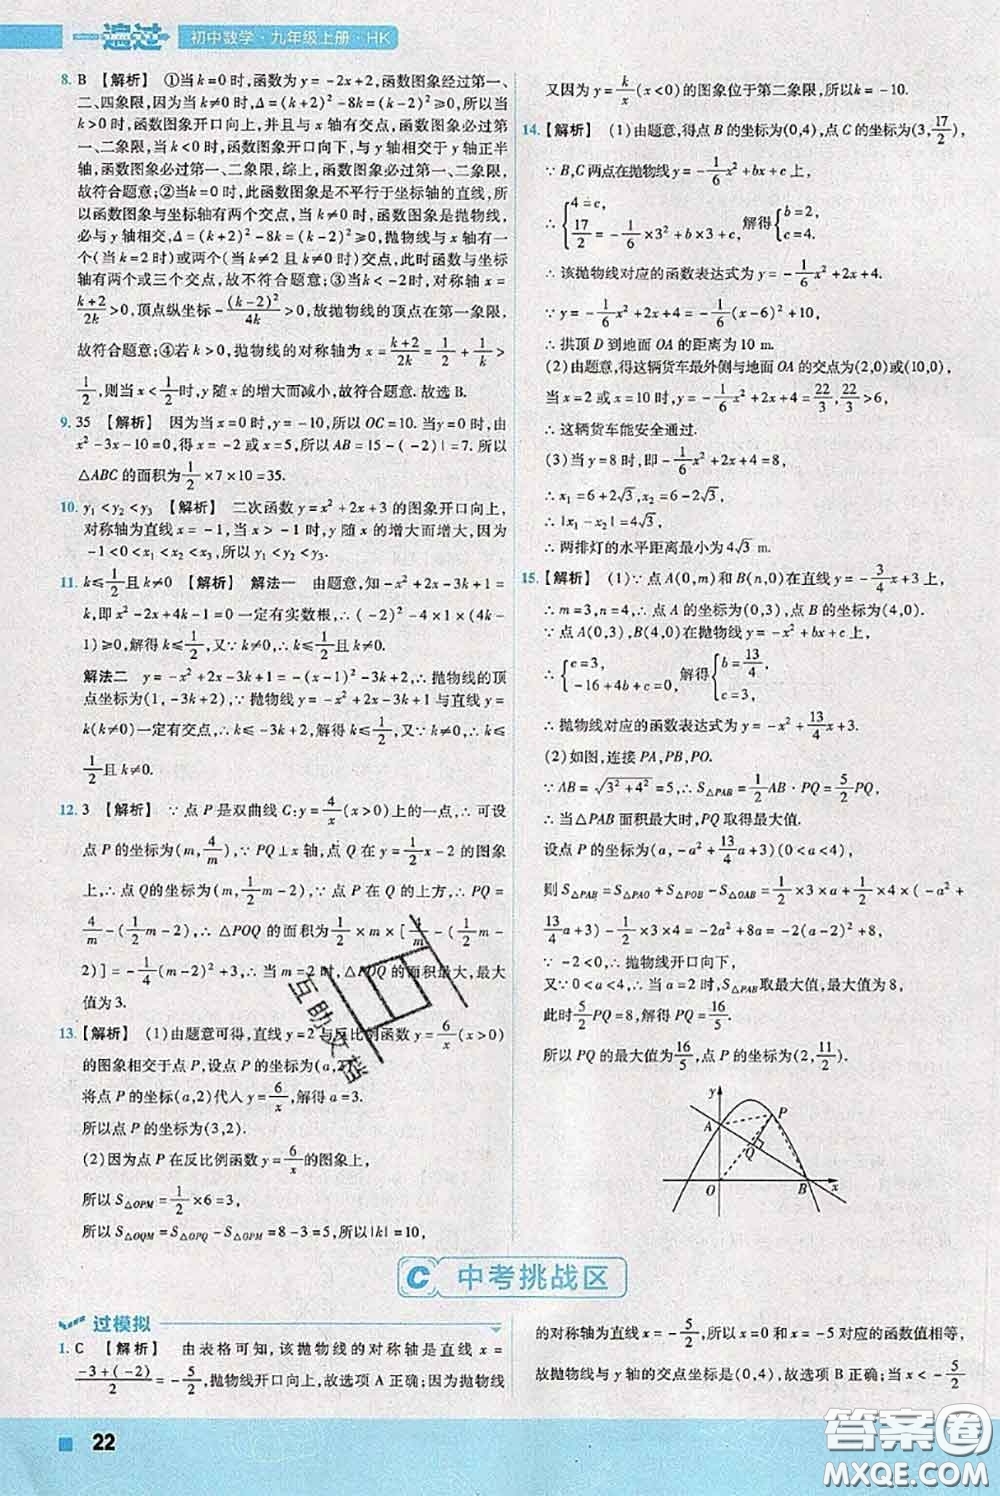 一遍过 初中数学·九年级上册·HK
8. B 【解析】 ①当k=0时,函数为y=-2x+2,函数图象经过第一、
二、四象限,因为当k≠0时,Δ=(k+2)²-8k=(k-2)²≥0,所以当
k>0时,函数图象开口向上,并且与x轴有交点,函数图象必过第
一、二象限,当k<0时,函数图象开口向下,与y轴相交于y轴正半
轴,函数图象必过第一、二象限,综上,函数图象必过第一、二象限,
故符合题意;②当k=0时,此函数图象是不平行于坐标轴的直线,所
以函数图象与坐标轴有两个交点,当k≠0时,函数图象是抛物线,
必与y轴相交,Δ=(k+2)²-8k=(k-2)²≥0,抛物线与x轴有一
个(当k=2时)或两个(当k≠2且k≠0时)交点,此时函数图象与坐标
轴有两个或三个交点,故不符合题意;③当k<-2时,对称轴x=
\frac{k+2}{2k}>0,顶点纵坐标-\frac{(k-2)²}{4k}>0,所以抛物线的顶点在第一象限,
故符合题意;④若k>0,抛物线的对称轴为x=\frac{k+2}{2k}=\frac{1}{2}+\frac{1}{k}>
\frac{1}{2},则当x<\frac{1}{2}时,y随x的增大而减小,故符合题意.故选B.
9. 35 【解析】 因为当x=0时,y=-10,所以OC=10.当y=0时,由
x²-3x-10=0,得x=-2或x=5,所以AB=|5-(-2)|=7.所以
△ABC的面积为\frac{1}{2}×7×10=35.
10. y₁<y₂<y₃ 【解析】 二次函数y=x²+2x+3的图象开口向上,
对称轴为直线x=-1,当x>-1时,y随x的增大而增大,因为
-1<0<x₁<x₂<x₃,所以y₁<y₂<y₃.
11. k≤\frac{1}{2}且k≠0 【解析】 解法一 由题意,知-x²+2x-3k+1=
k,即x²-2x+4k-1=0一定有实数根,∴(-2)²-4×1×(4k-
1)≥0,解得k≤\frac{1}{2},又∵k≠0,∴k≤\frac{1}{2}且k≠0.
解法二 y=-x²+2x-3k+1=-(x-1)²-3k+2,∴抛物线的顶
点坐标为(1,-3k+2),∵抛物线y=-x²+2x-3k+1与直线y=
k(k≠0)一定有交点,∴k≤-3k+2,解得k≤\frac{1}{2},又∵k≠0,∴k≤
\frac{1}{2}且k≠0.
12. 3 【解析】 ∵点P是双曲线C:y=\frac{4}{x}(x>0)上的一点,∴可设
点P的坐标为(m,\frac{4}{m}),∵PQ⊥x轴,点Q在y=\frac{1}{2}x-2的图象
上,∴点Q的坐标为(m,\frac{1}{2}m-2),∵点P在Q的上方,∴PQ=
\frac{4}{m}-(\frac{1}{2}m-2),∴△POQ的面积为\frac{1}{2}×m×[\frac{4}{m}-(\frac{1}{2}m-
2)]=-\frac{1}{4}(m-2)²+3,∴当m=2时,△POQ的面积最大,最大
值为3.
13. 【解析】 (1)由题意可得,直线y=2与反比例函数y=\frac{6}{x}(x>0)
的图象相交于点P,设点P的坐标为(a,2).
将点P的坐标(a,2)代入y=\frac{6}{x},解得a=3.
所以点P的坐标为(3,2).
(2)因为点P在反比例函数y=\frac{6}{x}的图象上,
所以S△OPM=\frac{1}{2}×6=3,
所以S△OQM=S△OPQ-S△OPM=8-3=5,所以|k|=10,
又因为y=\frac{k}{x}(x<0)的图象位于第二象限,所以k=-10.
14. 【解析】 (1)由题意,得点B的坐标为(0,4),点C的坐标为(3,\frac{17}{2}),
∵B,C两点在抛物线y=-\frac{1}{6}x²+bx+c上,
∴{4=c, \frac{17}{2}=-\frac{1}{6}×3²+b×3+c, 解得{b=2, c=4.
∴该抛物线对应的函数表达式为y=-\frac{1}{6}x²+2x+4.
∵y=-\frac{1}{6}x²+2x+4=-\frac{1}{6}(x-6)²+10,
∴拱顶D到地面OA的距离为10 m.
(2)由题意,得这辆货车最外侧与地面OA的交点为(2,0)或(10,0),
当x=2或x=10时,y=-\frac{1}{6}x²+2x+4=\frac{22}{3},\frac{22}{3}>6,
∴这辆货车能安全通过.
(3)当y=8时,即-\frac{1}{6}x²+2x+4=8,
∴x₁=6+2√3,x₂=6-2√3,
∴|x₁-x₂|=4√3,
∴两排灯的水平距离最小为4√3 m.
15. 【解析】 (1)∵点A(0,m)和B(n,0)在直线y=-\frac{3}{4}x+3上,
∴m=3,n=4,∴点A的坐标为(0,3),点B的坐标为(4,0).
∵点A(0,3),B(4,0)在抛物线y=-x²+bx+c上,
∴{c=3, -16+4b+c=0, 解得{b=\frac{13}{4}, c=3,
∴抛物线对应的函数表达式为y=-x²+\frac{13}{4}x+3.
(2)如图,连接PA,PB,PO.
∵AB=√(3²+4²)=5,∴S△PAB=\frac{1}{2}AB·PQ=\frac{5}{2}PQ,
∴当△PAB面积最大时,PQ取得最大值.
设点P的坐标为(a,-a²+\frac{13}{4}a+3)(0<a<4),
则S△PAB=S△PAO+S△POB-S△OAB=\frac{1}{2}×3×a+\frac{1}{2}×4×(-a²+
\frac{13}{4}a+3)-\frac{1}{2}×3×4=-2a²+8a=-2(a-2)²+8,
∵-2<0,∴抛物线开口向下,
又∵0<a<4,∴当a=2时,S△PAB取最大值,最大值为8,
此时\frac{5}{2}PQ=8,解得PQ=\frac{16}{5}.
所以PQ的最大值为\frac{16}{5},点P的坐标为(2,\frac{11}{2}).
y
A
P
Q
O
B
x
C 中考挑战区
过模拟
1. C 【解析】 由表格可知,该抛物线的对称轴是直线x=
\frac{-3+(-2)}{2}=-\frac{5}{2},抛物线开口向上,故选项A正确;因为抛物线
的对称轴为直线x=-\frac{5}{2},所以x=0和x=-5对应的函数值相等,
故抛物线与y轴的交点坐标是(0,8),故选项B正确;当x<-\frac{5}{2}
22
互助文档
答案圈
MXQE.COM